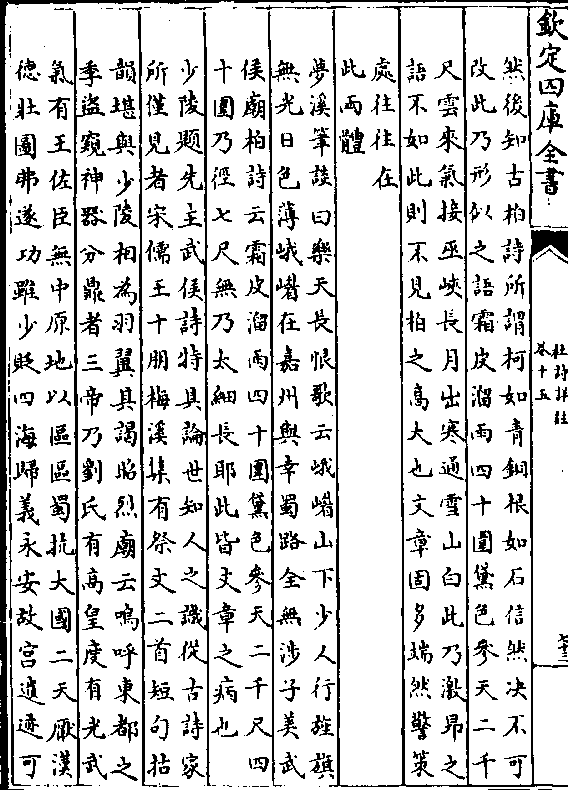 欽定四庫全書
杜詩詳註
卷十五
然後知古柏詩所謂柯如青銅根如石信然决不可
改此乃形似之語霜皮溜雨四十圍黛色參天二千
尺雲來氣接巫峽長月出寒通雪山白此乃激昂之
語不如此則不見柏之高大也文章固多端然警策
處往往在
此兩體
夢溪筆談曰樂天長恨歌云峨嵋山下少人行旌旗
無光日色薄峨嵋在嘉州與幸蜀路全無涉子美武
侯廟柏詩云霜皮溜雨四十圍黛色參天二千尺四
十圍乃徑七尺無乃太細長耶此皆文章之病也
少陵題先主武侯詩特具論世知人之識從古詩家
所僅見者宋儒王十朋梅溪集有祭文二首短句拈
韻堪與少陵相為羽翼其謁昭烈廟云嗚呼東都之
季盜窺神器分鼎者三帝乃劉氏有高皇度有光武
氣有王佐臣無中原地以區區蜀抗大國二天厭漢
德壯圖弗遂功雖少貶四海歸義永安故宫遺迹可